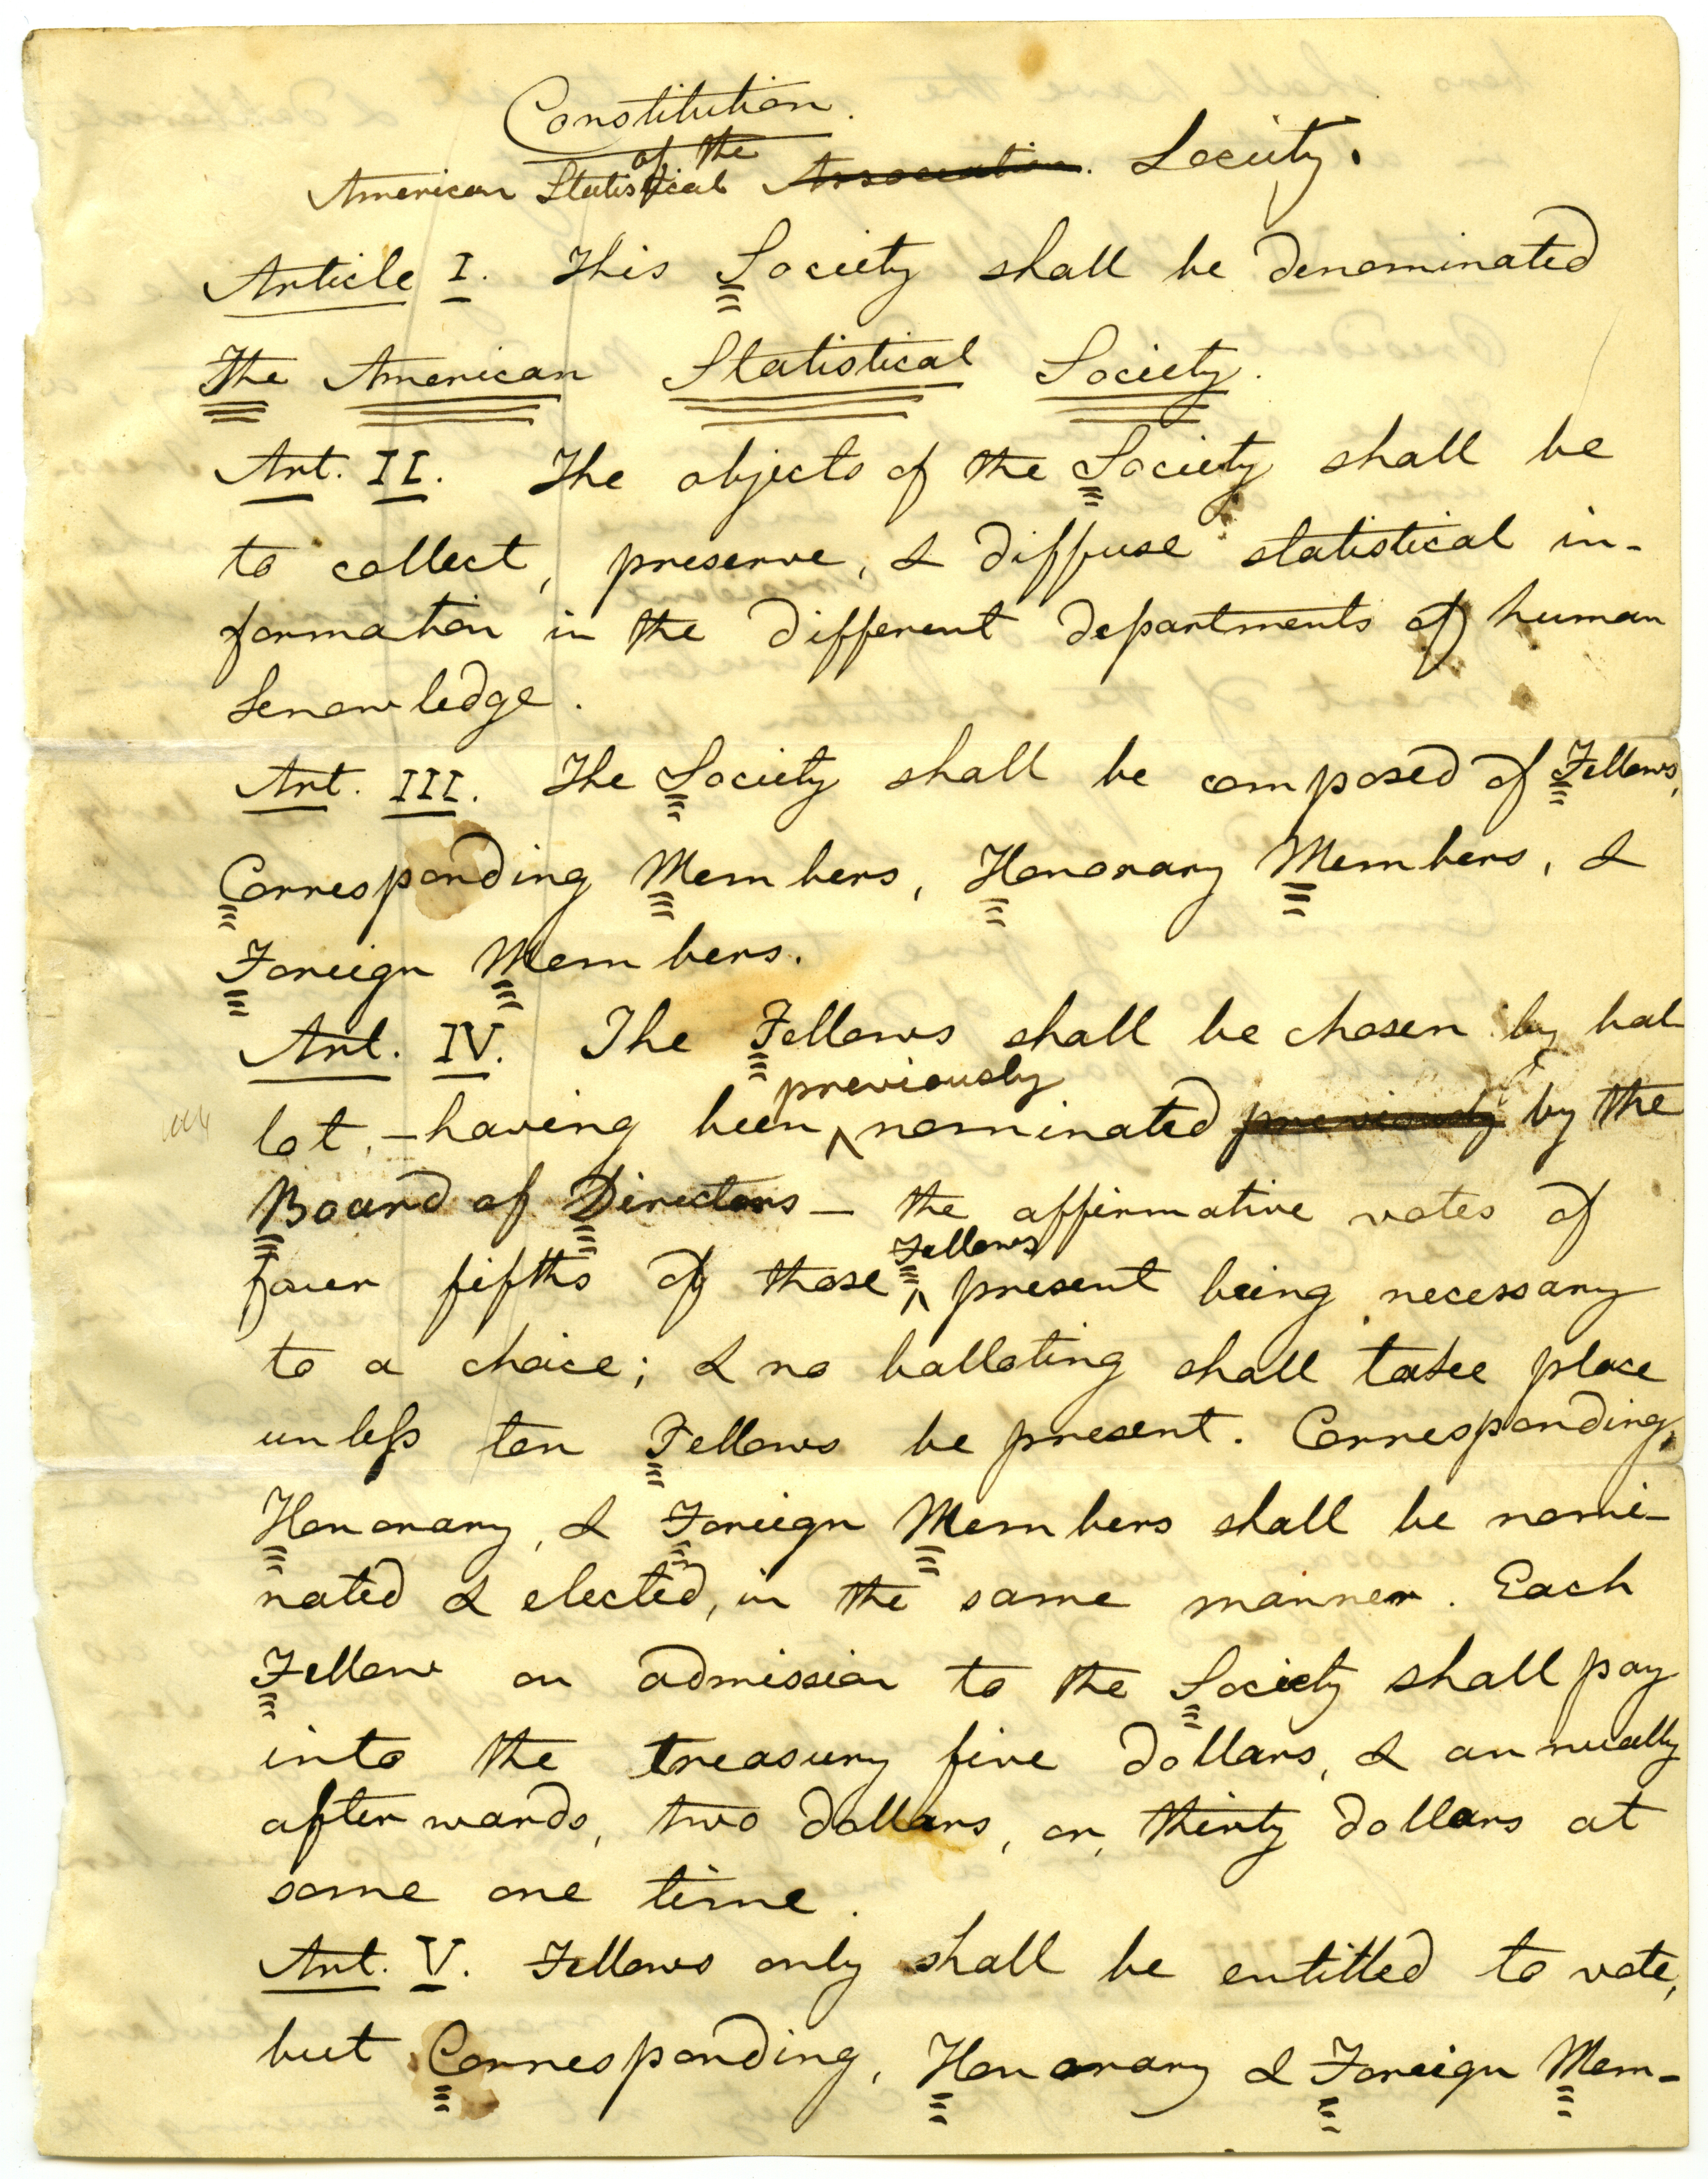 Constitution.
of the
American Statistical Association. Society.
Article I. This Society shall be denominated
The American Statistical Society.
Art. II. The objects of the Society shall be
to collect, preserve, & diffuse statistical in-
formation in the different departments of human
knowledge.
Art. III. The Society shall be composed of Fellows,
Corresponding Members, Honorary Members, &
Foreign Members.
Art. IV. The Fellows shall be chosen by bal-
previously
lot, – having been ^ nominated previously by the
Board of Directors – the affirmative votes of
Fellows
four fifths of those ^ present being necessary
to a choice; & no balloting shall take place
unless ten Fellows be present. Corresponding,
Honorary, & Foreign Members shall be nomi-
nated & elected, in the same manner. Each
Fellow on admission to the Society shall pay
into the treasury five dollars, & annually
afterwards, two dollars, or, thirty dollars at
some one time.
Art. V. Fellows only shall be entitled to vote,
but Corresponding, Honorary & Foreign Mem-